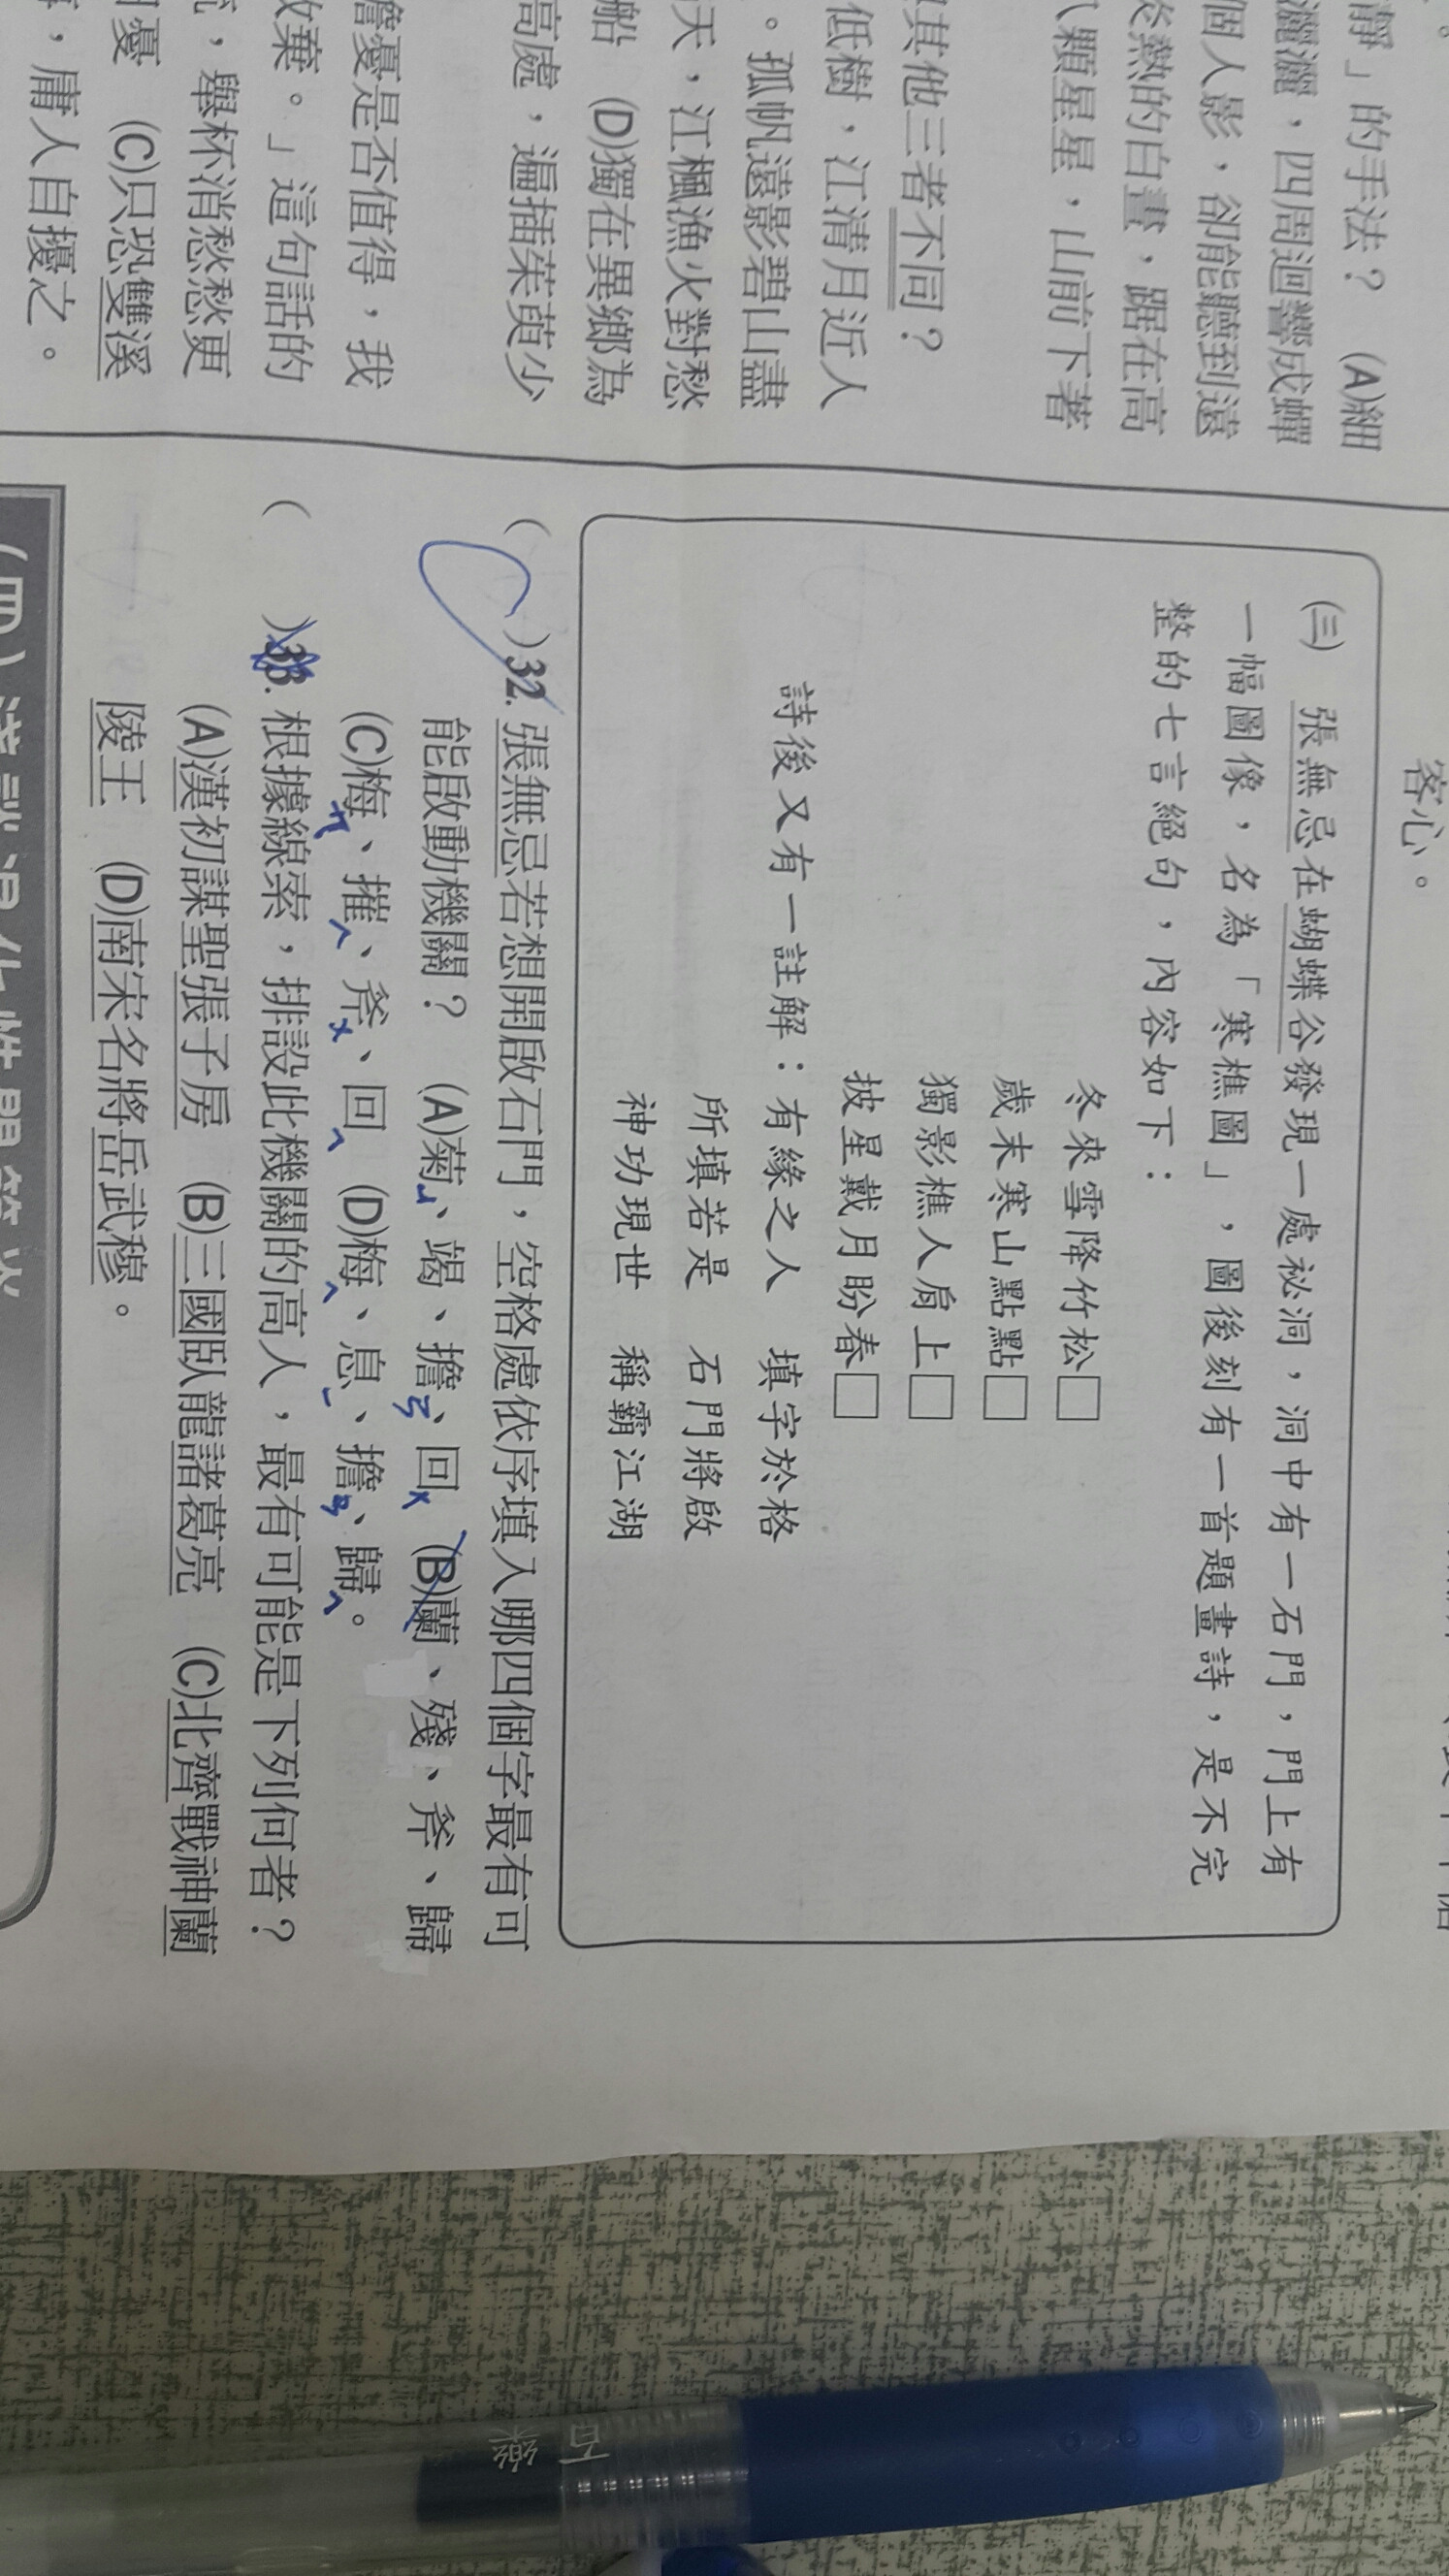 靜」的手法? (A)細
灑灑,四周迴響成蟬
個人影,卻能聽到遠
炎熱的白晝,踞在高
八顆星星,山前下著
其他三者不同?
低樹,江清月近人
。孤帆遠影碧山盡
天,江楓漁火對愁
船 (D)獨在異鄉為
高處,遍插茱萸少
憂是否值得,我
放棄。」這句話的
,舉杯消愁愁更
憂 (C)只恐雙溪
,庸人自擾之。
客心。
(三) 張無忌在蝴蝶谷發現一處祕洞,洞中有一石門,門上有
一幅圖像,名為「寒樵圖」,圖後刻有一首題畫詩,是不完
整的七言絕句,內容如下:
冬來雪降竹松□
歲末寒山點點□
獨影樵人肩上□
披星戴月盼春□
詩後又有一註解:有緣之人 填字於格
所填若是 石門將啟
神功現世 稱霸江湖
( )32. 張無忌若想開啟石門,空格處依序填入哪四個字最有可
能啟動機關? (A)菊、竭、擔、回 (B)蘭、殘、斧、歸
(C)梅、摧、斧、回 (D)梅、息、擔、歸。
( )33. 根據線索,排設此機關的高人,最有可能是下列何者?
(A)漢初謀聖張子房 (B)三國臥龍諸葛亮 (C)北齊戰神蘭
陵王 (D)南宋名將岳武穆。
百樂